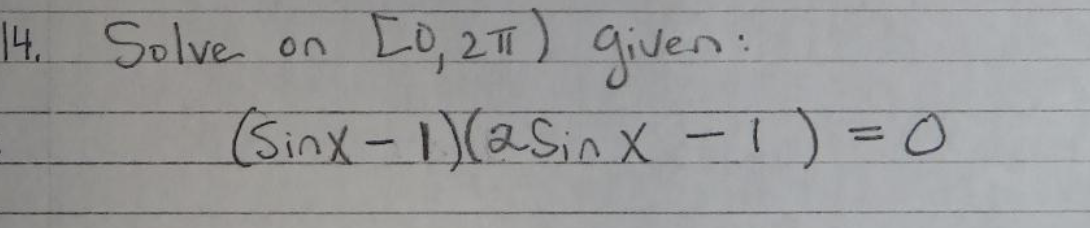 14. Solve on [0, 2π) given:
(Sinx - 1)(2Sin x - 1) = 0